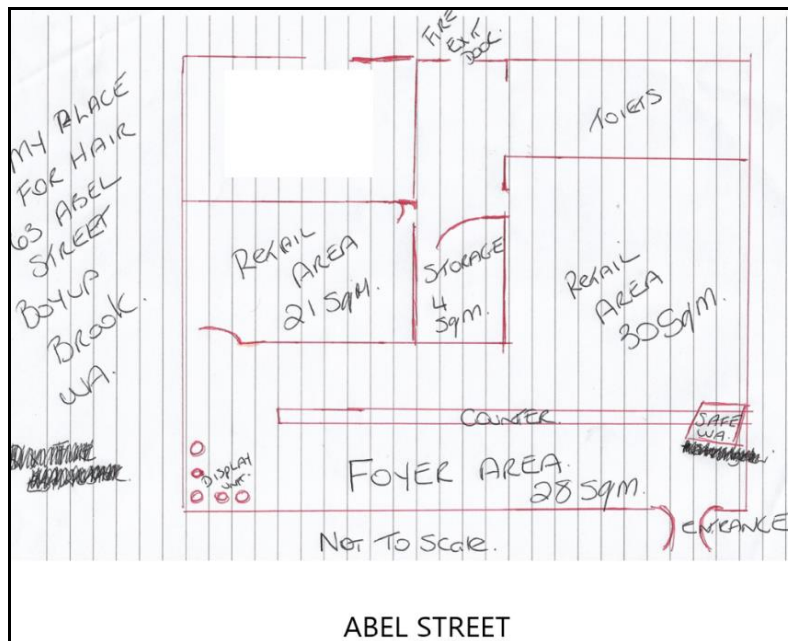 FIRE
EXIT
DOOR.
MY PLACE
FOR HAIR
63 ABEL
STREET
BOYUP
BROOK.
WA.
TOIETS
RETAIL
AREA
21 SqM.
STORAGE
4
Sqm.
RETAIL
AREA
30 Sqm.
COUNTER.
SAFE
WA.
DISPLAY
UNIT.
FOYER AREA.
28 Sqm.
ENTRANCE
NOT TO SCALE.
ABEL STREET